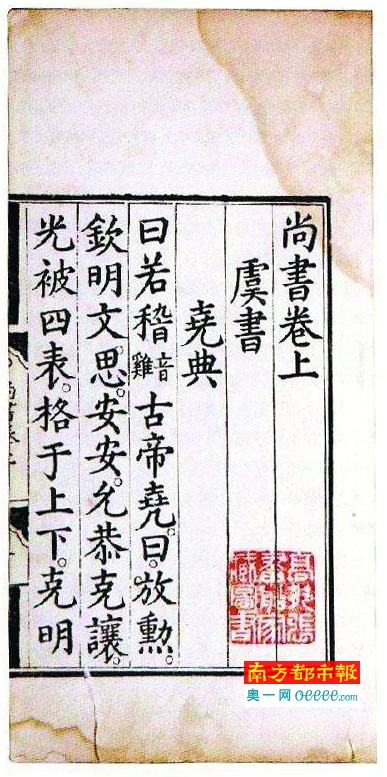 尚書卷上
虞書
堯典
曰若稽音雞古帝堯。曰。放勳。
欽明文思。安安。允恭克讓。
光被四表。格于上下。克明
南方都市報
奥一网 oeeee.com